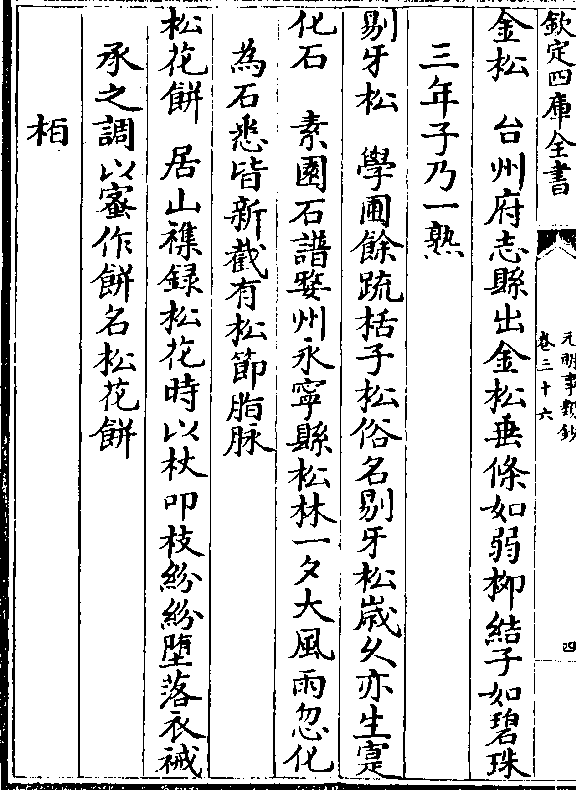 欽定四庫全書
元明事類鈔
卷三十六
四
金松　台州府志縣出金松垂條如弱栁結子如碧珠
三年子乃一熟
剔牙松　學圃餘疏栝子松俗名剔牙松歲久亦生實
化石　素園石譜婺州永寧縣松林一夕大風雨忽化
為石悉皆新截有松節脂脉
松花餅　居山襍録松花時以杖叩枝紛紛墮落衣裓
承之調以蜜作餅名松花餅
栢